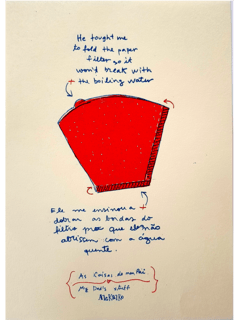 He taught me
to fold the paper
filter so it
won't break with
the boiling water
Ele me ensinou a
dobrar as bordas do
filtro pra que elas não
abrissem com a água
quente.
As Coisas do meu Pai
My Dad's stuff